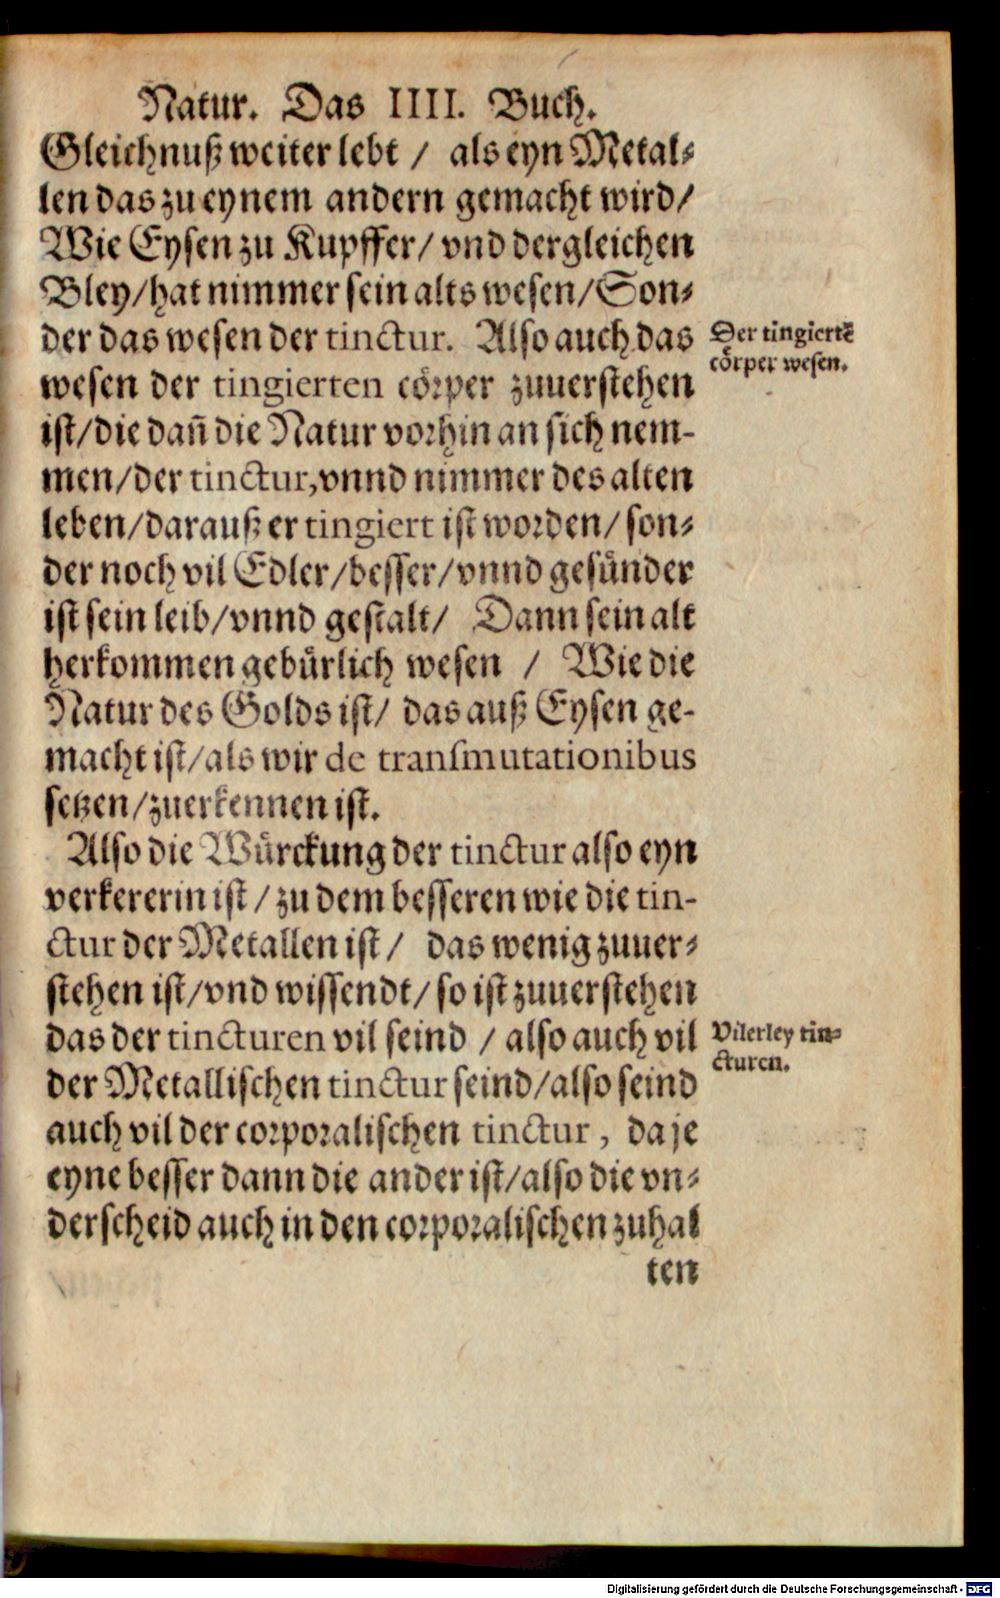 Natur. Das IIII. Buch.
Gleichnuß weiter lebt / als eyn Metal⸗
len das zu eynem andern gemacht wird/
Wie Eysen zu Kupffer/ vnd dergleichen
Bley/hat nimmer sein alts wesen/Son⸗
der das wesen der tinctur. Also auch das
Der tingiertē
cörper wesen.
wesen der tingierten cörper zuuerstehen
ist/die dañ die Natur vorhin an sich nem-
men/der tinctur,vnnd nimmer des alten
leben/darauß er tingiert ist worden/ son⸗
der noch vil Edler/besser/vnnd gesünder
ist sein leib/vnnd gestalt/ Dann sein alt
herkommen gebürlich wesen / Wie die
Natur des Golds ist/ das auß Eysen ge-
macht ist/als wir de transmutationibus
setzen/zuerkennen ist.
Also die Würckung der tinctur also eyn
verkererin ist / zu dem besseren wie die tin-
ctur der Metallen ist / das wenig zuuer⸗
stehen ist/vnd wissendt/ so ist zuuerstehen
das der tincturen vil seind / also auch vil
Vilerley tin⸗
cturen.
der Metallischen tinctur seind/also seind
auch vil der corporalischen tinctur, da je
eyne besser dann die ander ist/also die vn⸗
derscheid auch in den corporalischen zuhal
ten
Digitalisierung gefördert durch die Deutsche Forschungsgemeinschaft - DFG